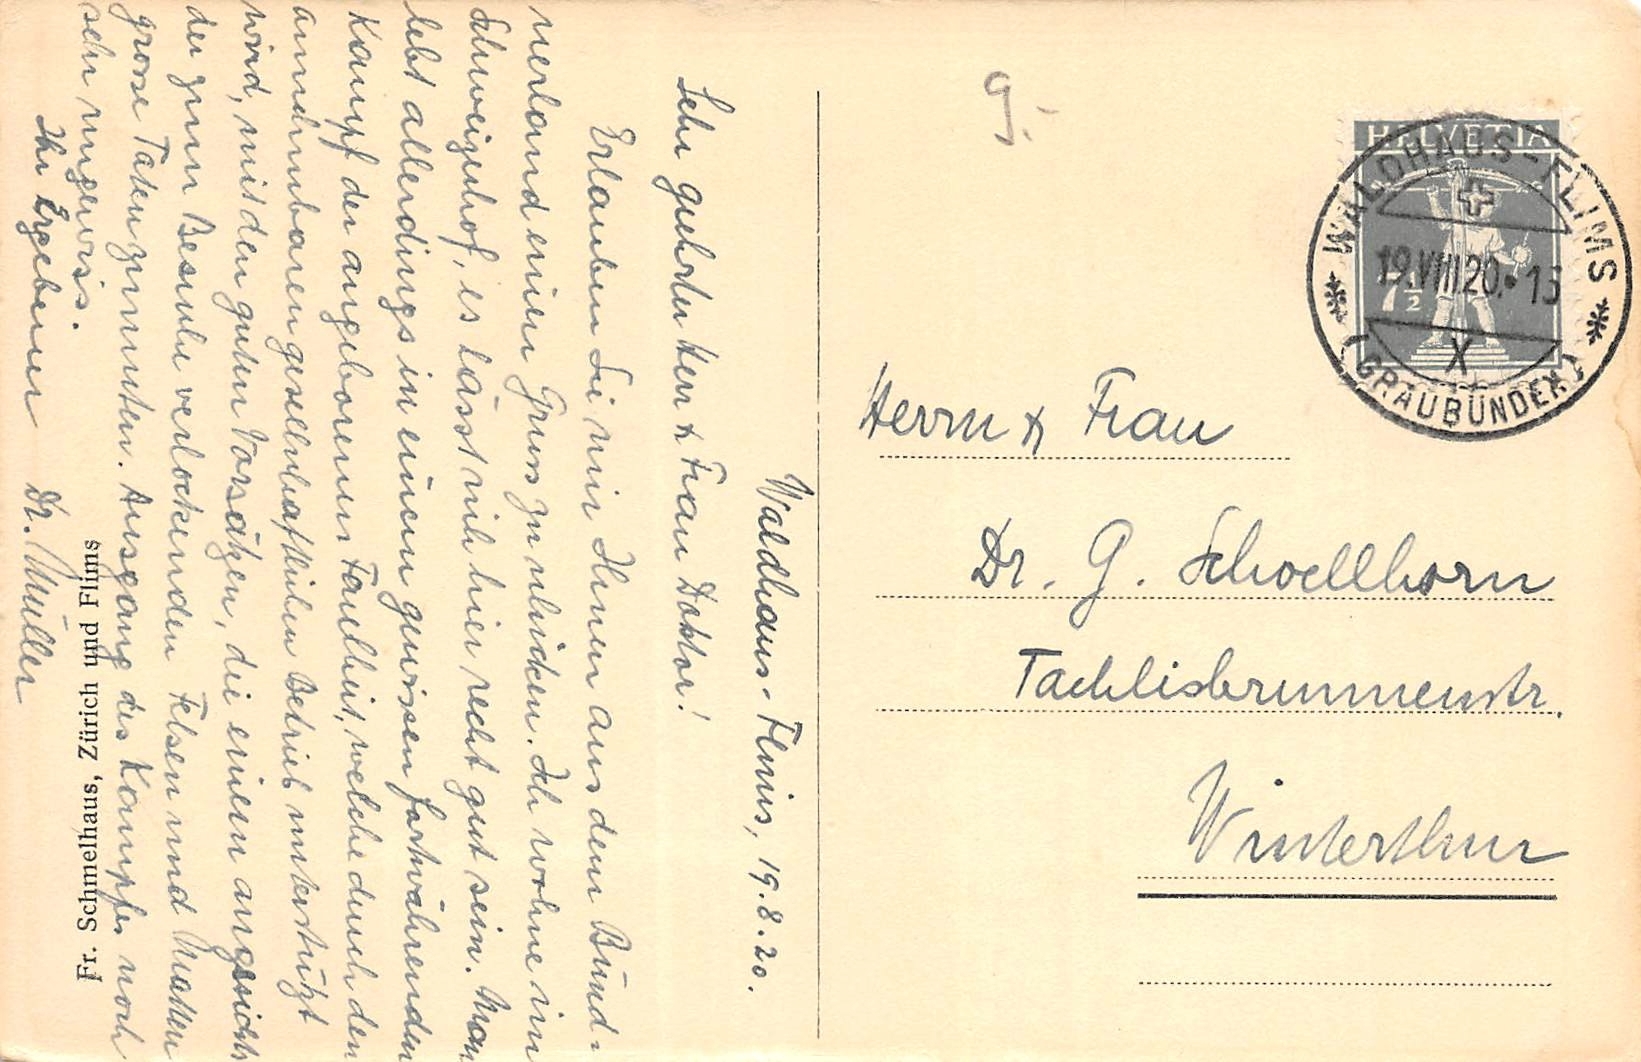 Waldhaus-Flims, 19.8.20.
Sehr geehrter Herr & Frau Doktor!
Erlauben Sie mir Ihnen aus dem Bünd-
nerland einen Gruss zu schicken. Ich wohne im
Schweizerhof, es lässt sich hier recht gut sein. Man
lebt allerdings in einem gewissen fortwährenden
Kampf der angeborenen Faulheit, welche durch den
annehmbaren gesellschaftlichen Betrieb unterstützt
wird, mit den guten Vorsätzen, die einem angesichts
der zum Besuche verlockenden Felsen und Matten
grosse Taten zumuten. Ausgang des Kampfes noch
sehr ungewiss.
Ihr Ergebener Dr. Müller
Fr. Schmelhaus, Zürich und Flims
9.-
HELVETIA
7½
WALDHAUS-FLIMS
19.VIII.20.
X
(GRAUBÜNDEN)
Herrn & Frau
Dr. G. Schoellhorn
Tachlisbrunnenstr.
Winterthur